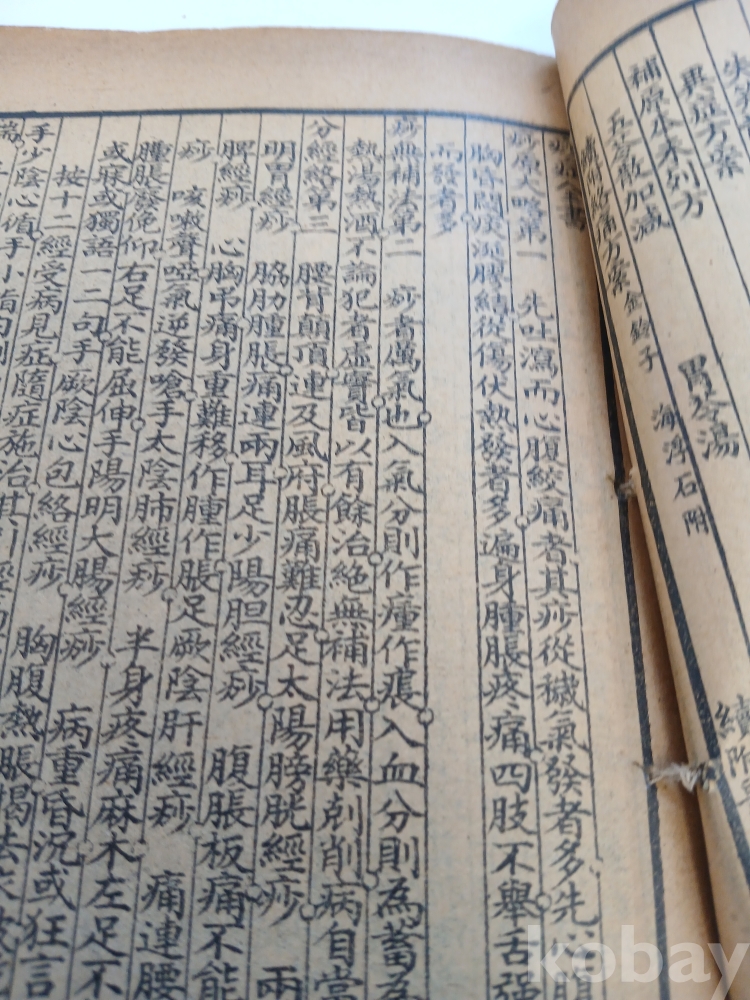 尖
異症方案
補原本未列方
五苓散加减 胃苓湯
續附 痛方案 金鈴子 海浮石 附
續附
痧症全書
痧原大略第一 先吐瀉而心腹絞痛者其痧從穢氣發者多先心腹
胸昏悶痰涎膠結從傷伏熱發者多遍身腫脹疼痛四肢不舉舌强
而發者多
痧無補法第二 痧者厲氣也入氣分則作瘇作瘬入血分則為蓄為
熱湯熱酒不論犯者虛實皆以有餘冶絶無補法用藥剋削病自當
分經絡第三 腰背顛頂連及風府脹痛難忍足太陽膀胱經痧 兩
明胃經痧 脇肋腫脹痛連兩耳足少陽胆經痧 腹脹板痛不能
脾經痧 心胸吊痛身重難移作腫作脹足厥陰肝經痧 痛連腰
痧 咳嗽聲啞氣逆發嗆手太陰肺經痧 半身疼痛麻木左足不
腫脹廢俛仰右足不能屈伸手陽明大腸經痧 病重昏沉或狂言
或麻或獨語一二句手厥陰心包絡經痧 胸腹熱脹揭去衣被
按十二經受病見症隨症施冶其引經
手少陰心循手小指